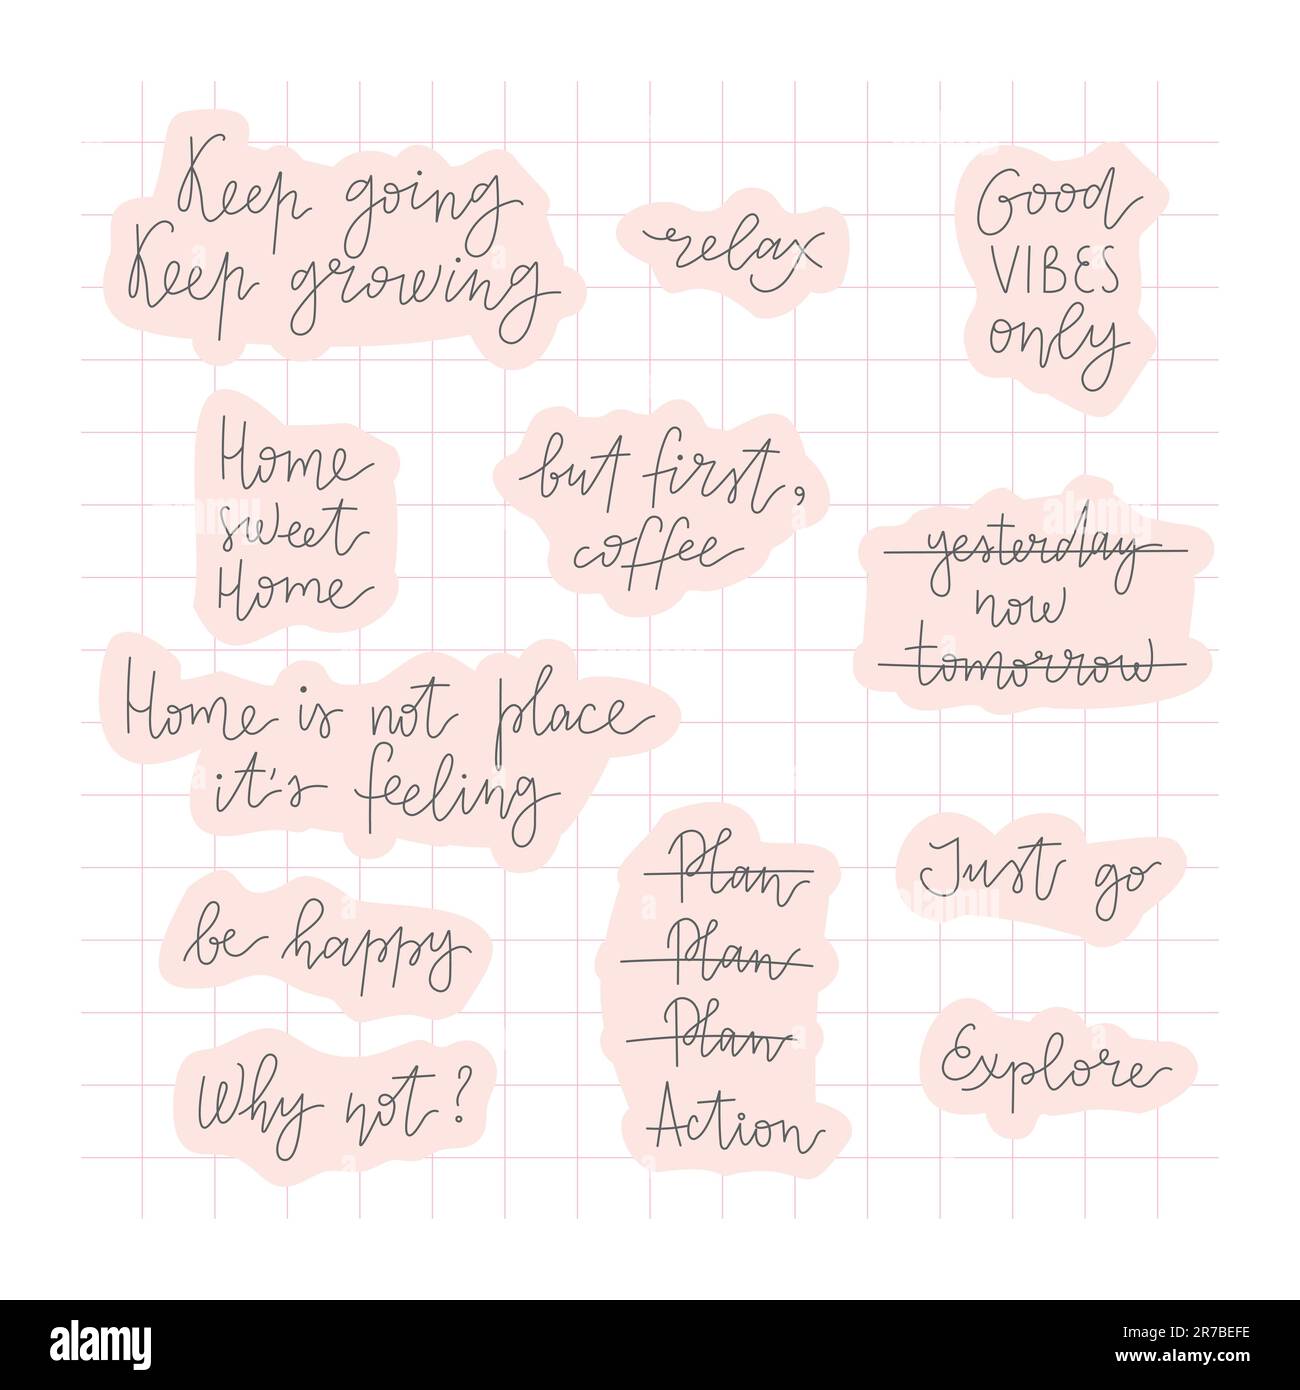 Keep going
Keep growing
relax
Good
VIBES
only
Home
sweet
Home
but first,
coffee
yesterday
now
tomorrow
Home is not place
it's feeling
Plan
Plan
Plan
Action
Just go
be happy
Why not?
Explore
alamy
Image ID: 2R7BEFE
www.alamy.com